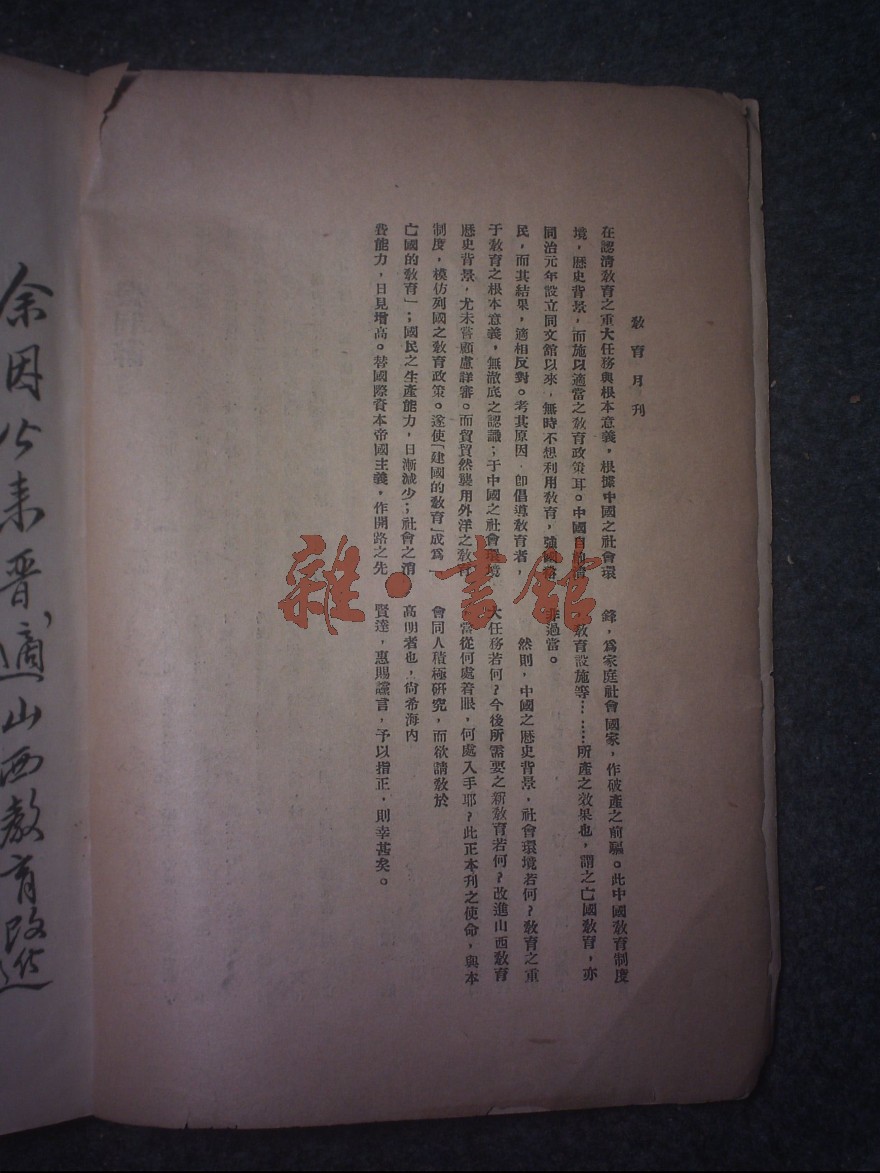 教育月刊
在認清教育之重大任務與根本意義，根據中國之社會環
境，歷史背景，而施以適當之教育政策耳。中國自
同治元年設立同文館以來，無時不想利用教育，強
民，而其結果，適相反對。考其原因，卽倡導教育者，
于教育之根本意義，無澈底之認識；于中國之社會環境
歷史背景，尤未嘗顧慮詳審。而貿貿然襲用外洋之教育
制度，模仿列國之教育政策。遂使「建國的教育」成爲「
亡國的教育」；國民之生產能力，日漸減少；社會之消
費能力，日見增高。替國際資本帝國主義，作開路之先
鋒，爲家庭社會國家，作破產之前驅。此中國教育制度
教育設施等……所產之效果也，謂之亡國教育，亦
非過當。
然則，中國之歷史背景，社會環境若何？教育之重
大任務若何？今後所需要之新教育若何？改進山西教育
當從何處着眼，何處入手耶？此正本刊之使命，與本
會同人積極研究，而欲請教於
高明者也，尙希海內
賢達，惠賜讜言，予以指正，則幸甚矣。
余因公來晋適山西教育改進
雜·書館